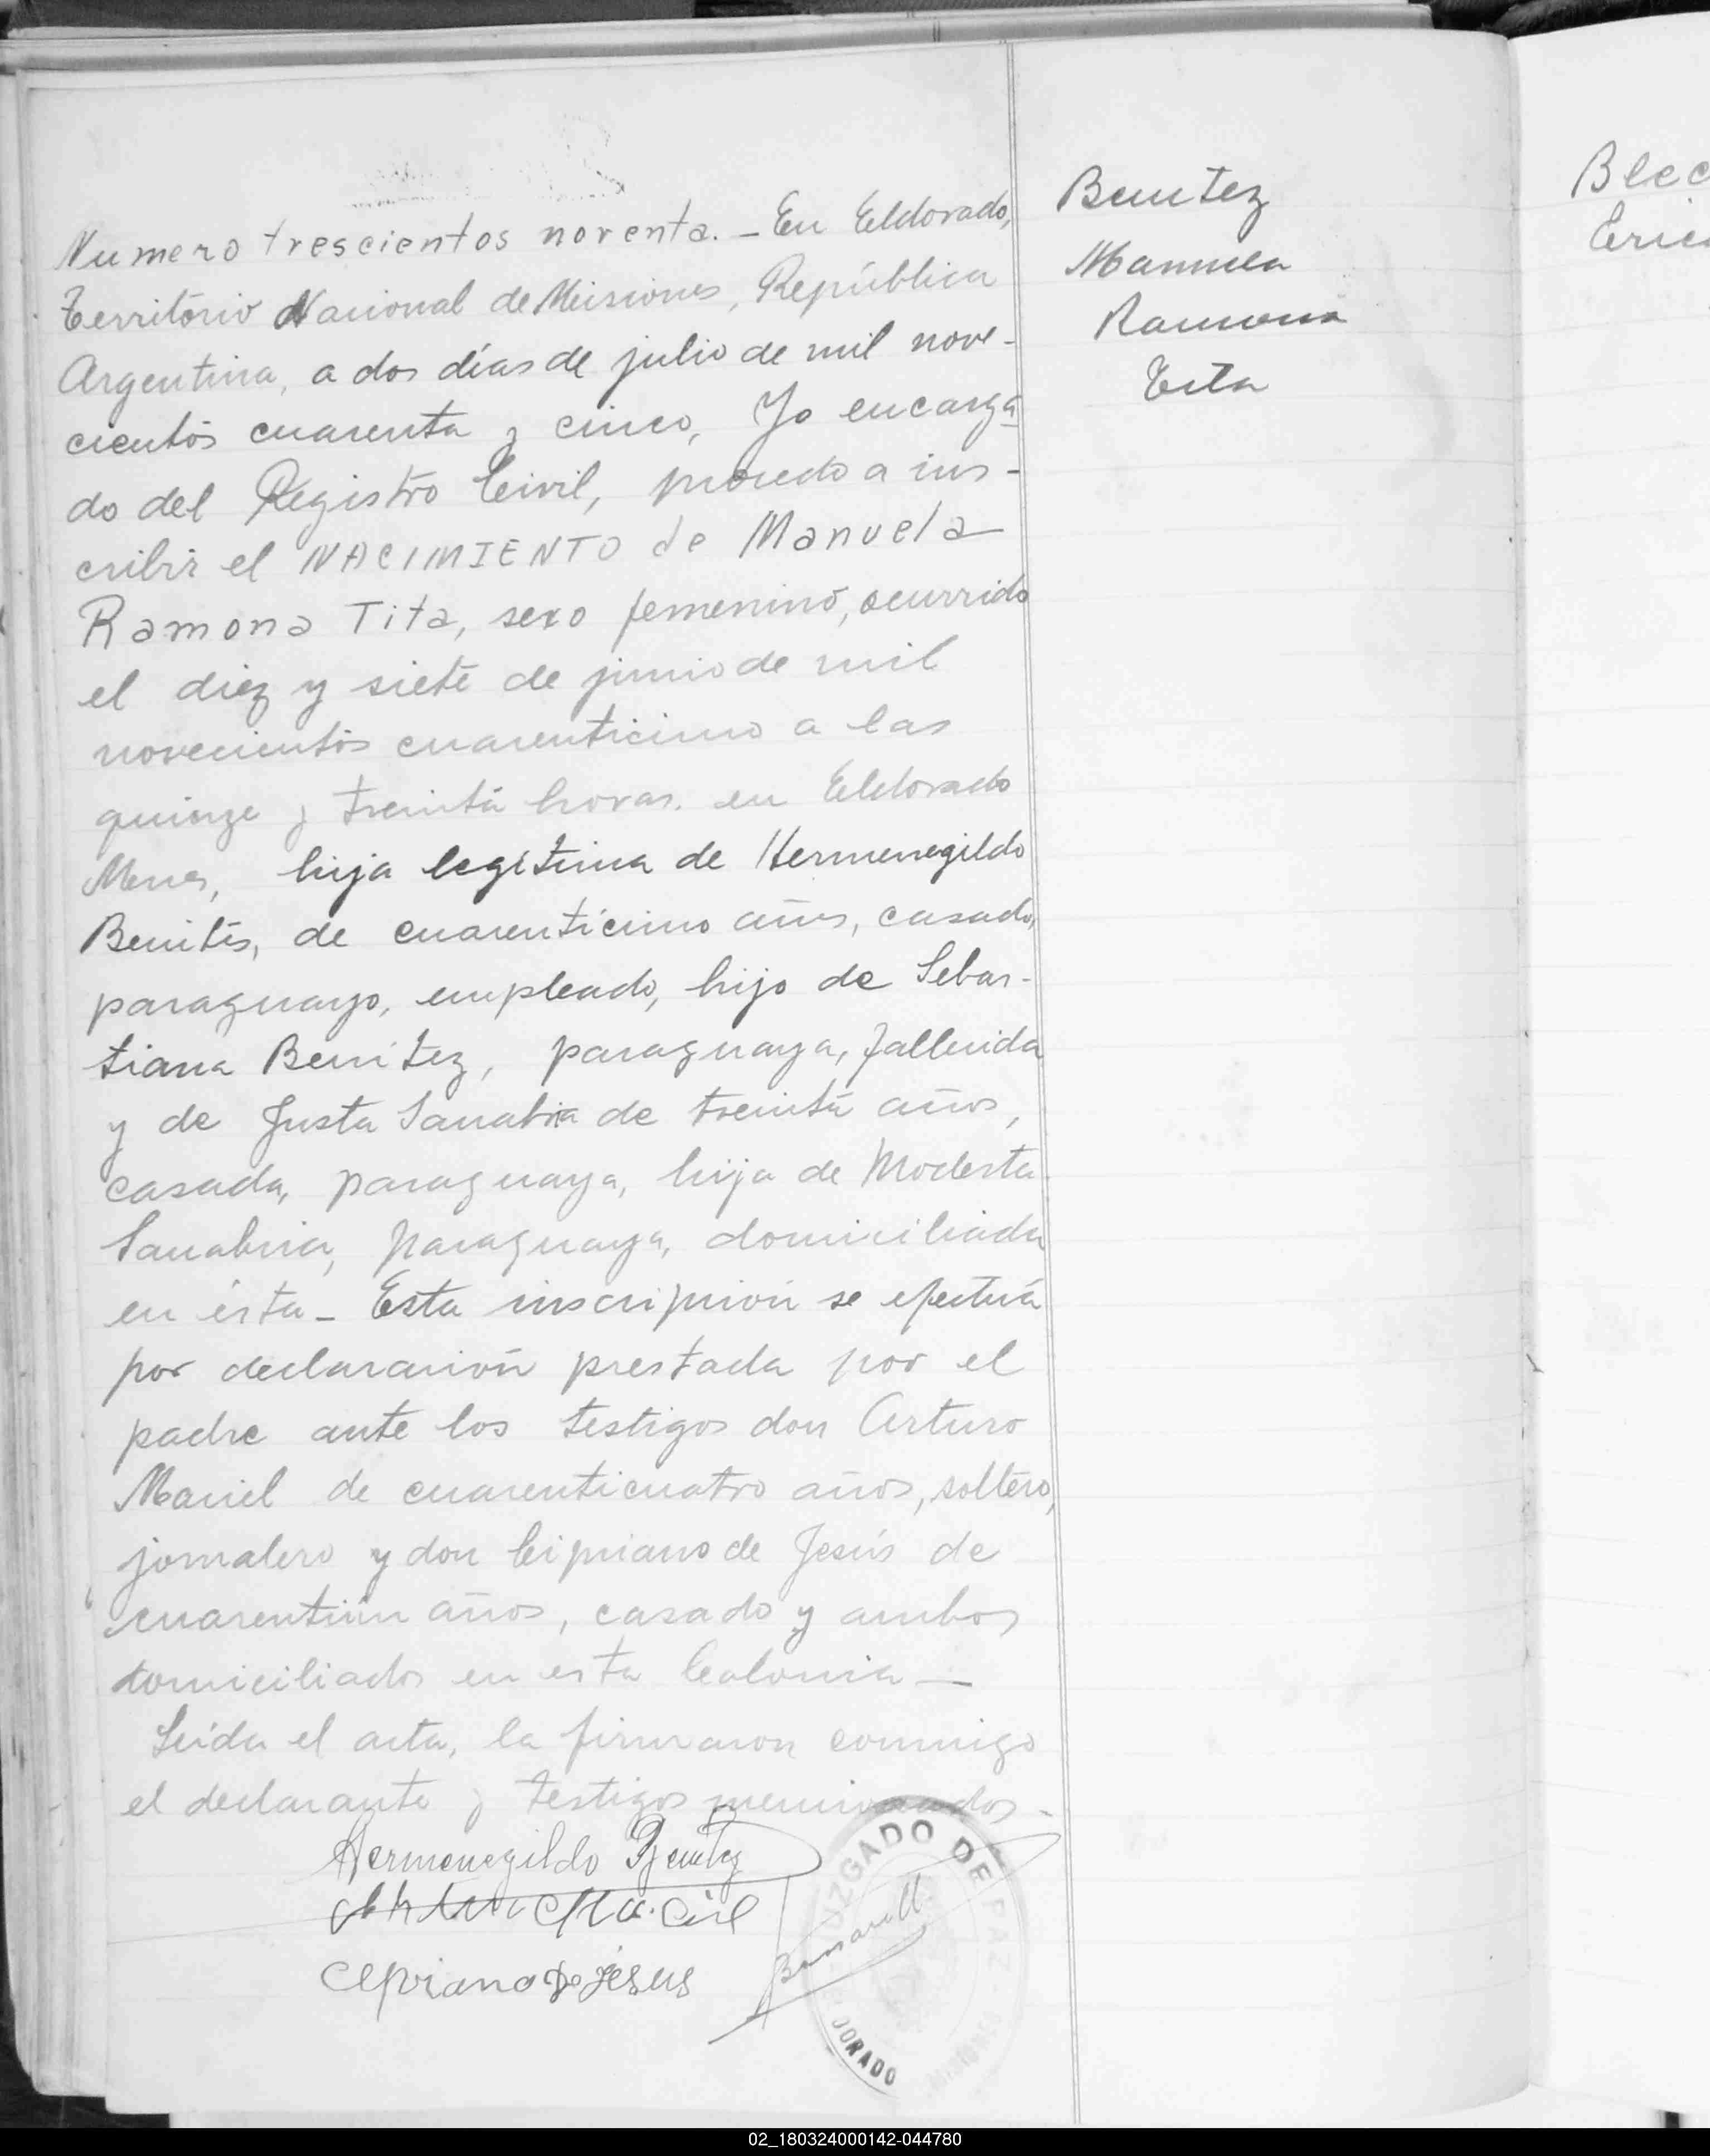 Numero trescientos noventa. - En Eldorado,
Territorio Nacional de Misiones, República
Argentina, a dos días de julio de mil nove-
cientos cuarenta y cinco, Yo encarga
do del Registro Civil, procedo a ins-
cribir el NACIMIENTO de Manuela
Ramona Tita, sexo femenino, ocurrido
el diez y siete de junio de mil
novecientos cuarenticinco a las
quinze y treinta horas. en Eldorado
hija legitima de Hermenegildo
Benites, de cuarenticinco años, casado,
paraguayo, empleado, hijo de Sebas-
tiana Benitez, paraguaya, fallecida
y de Justa Sanabria de treinta años,
casada, paraguaya, hija de Modesta
Sanabria, paraguaya, domiciliada
en ésta - Esta inscripción se efectúa
por declaración prestada por el
padre ante los testigos don Arturo
Maciel de cuarenticuatro años, soltero,
jornalero y don Cipriano de Jesús de
cuarentiún años, casado y ambos
domiciliados en esta Colonia —
Leída el acta, la firmaron conmigo
el declarante y testigos mencionados -
Hermenegildo Benitez
Arturo Maciel
Cipriano De jesus
JUZGADO DE PAZ
DORADO
MISIONES
Benitez
Manuela
Ramona
Tita
Blec
Eric
02_180324000142-044780